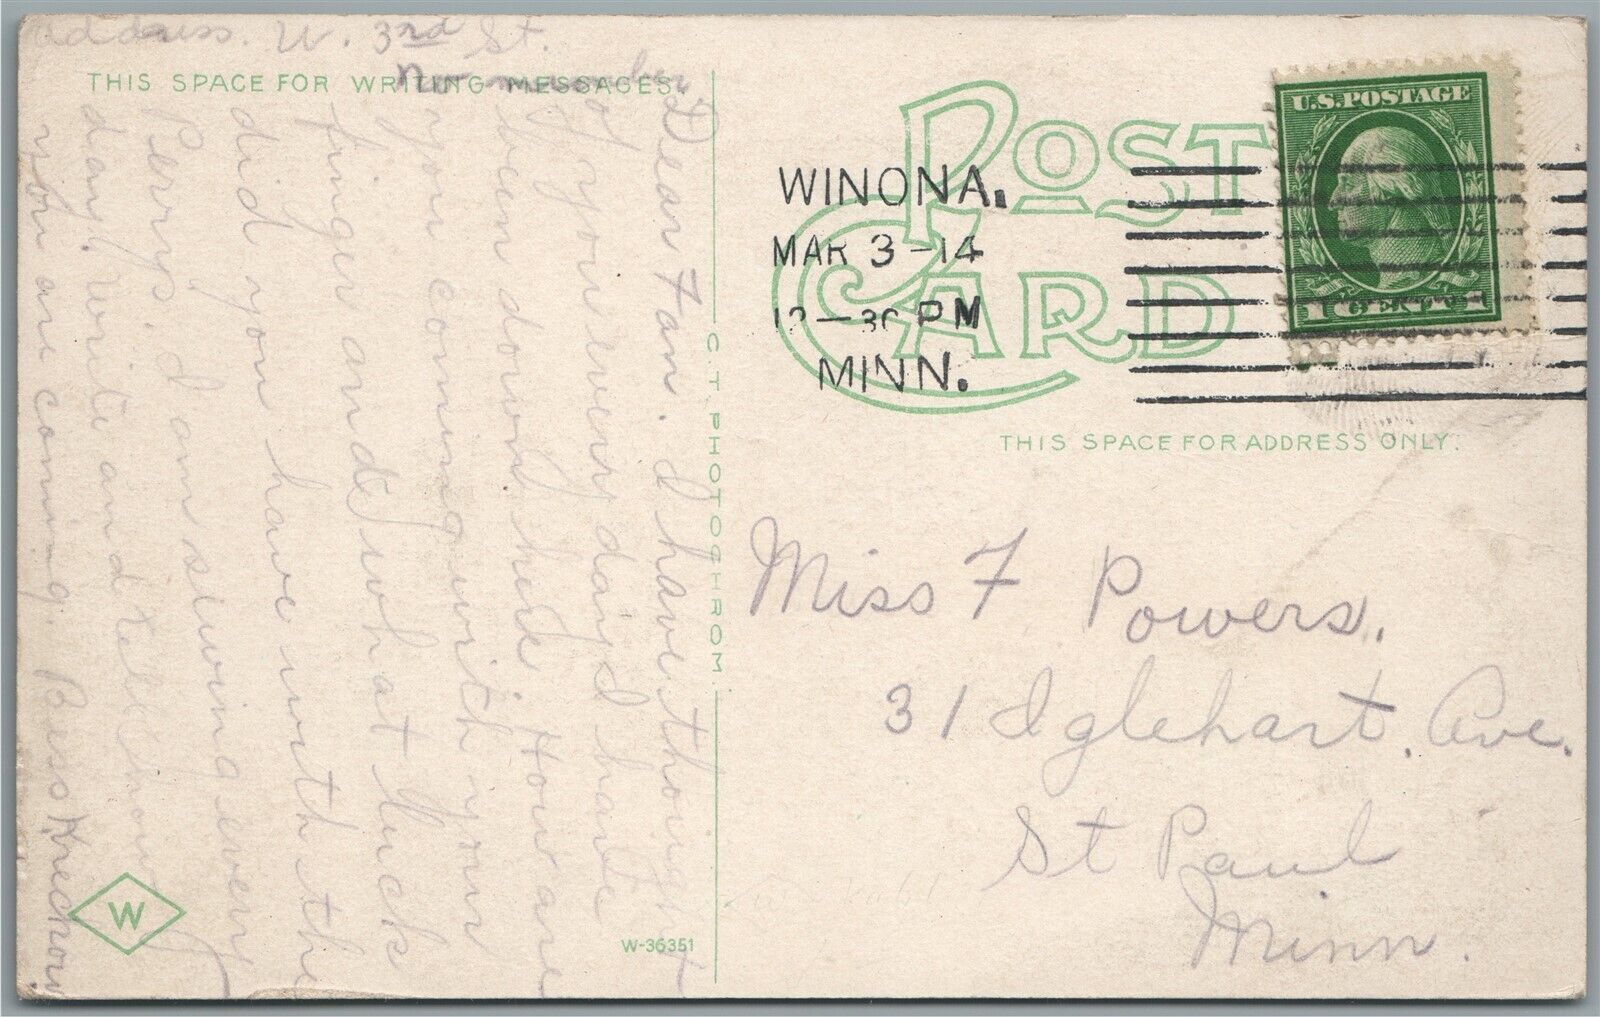 address. W. 3rd St.
no number
THIS SPACE FOR WRITING MESSAGES.
Dear Fan. I have thought
of you every day I have
been down here. How are
you coming with your
finger and what luck
did you have with the
Perrys. I am sewing every
day. Write and tell
you are coming. Bess
W
W-36351
C. T. PHOTOCHROM
POST CARD
WINONA.
MAR 3 -14
12-30 PM
MINN.
U.S. POSTAGE
1 CENT 1
THIS SPACE FOR ADDRESS ONLY.
Miss F Powers.
31 Iglehart. Ave.
St Paul
Minn.